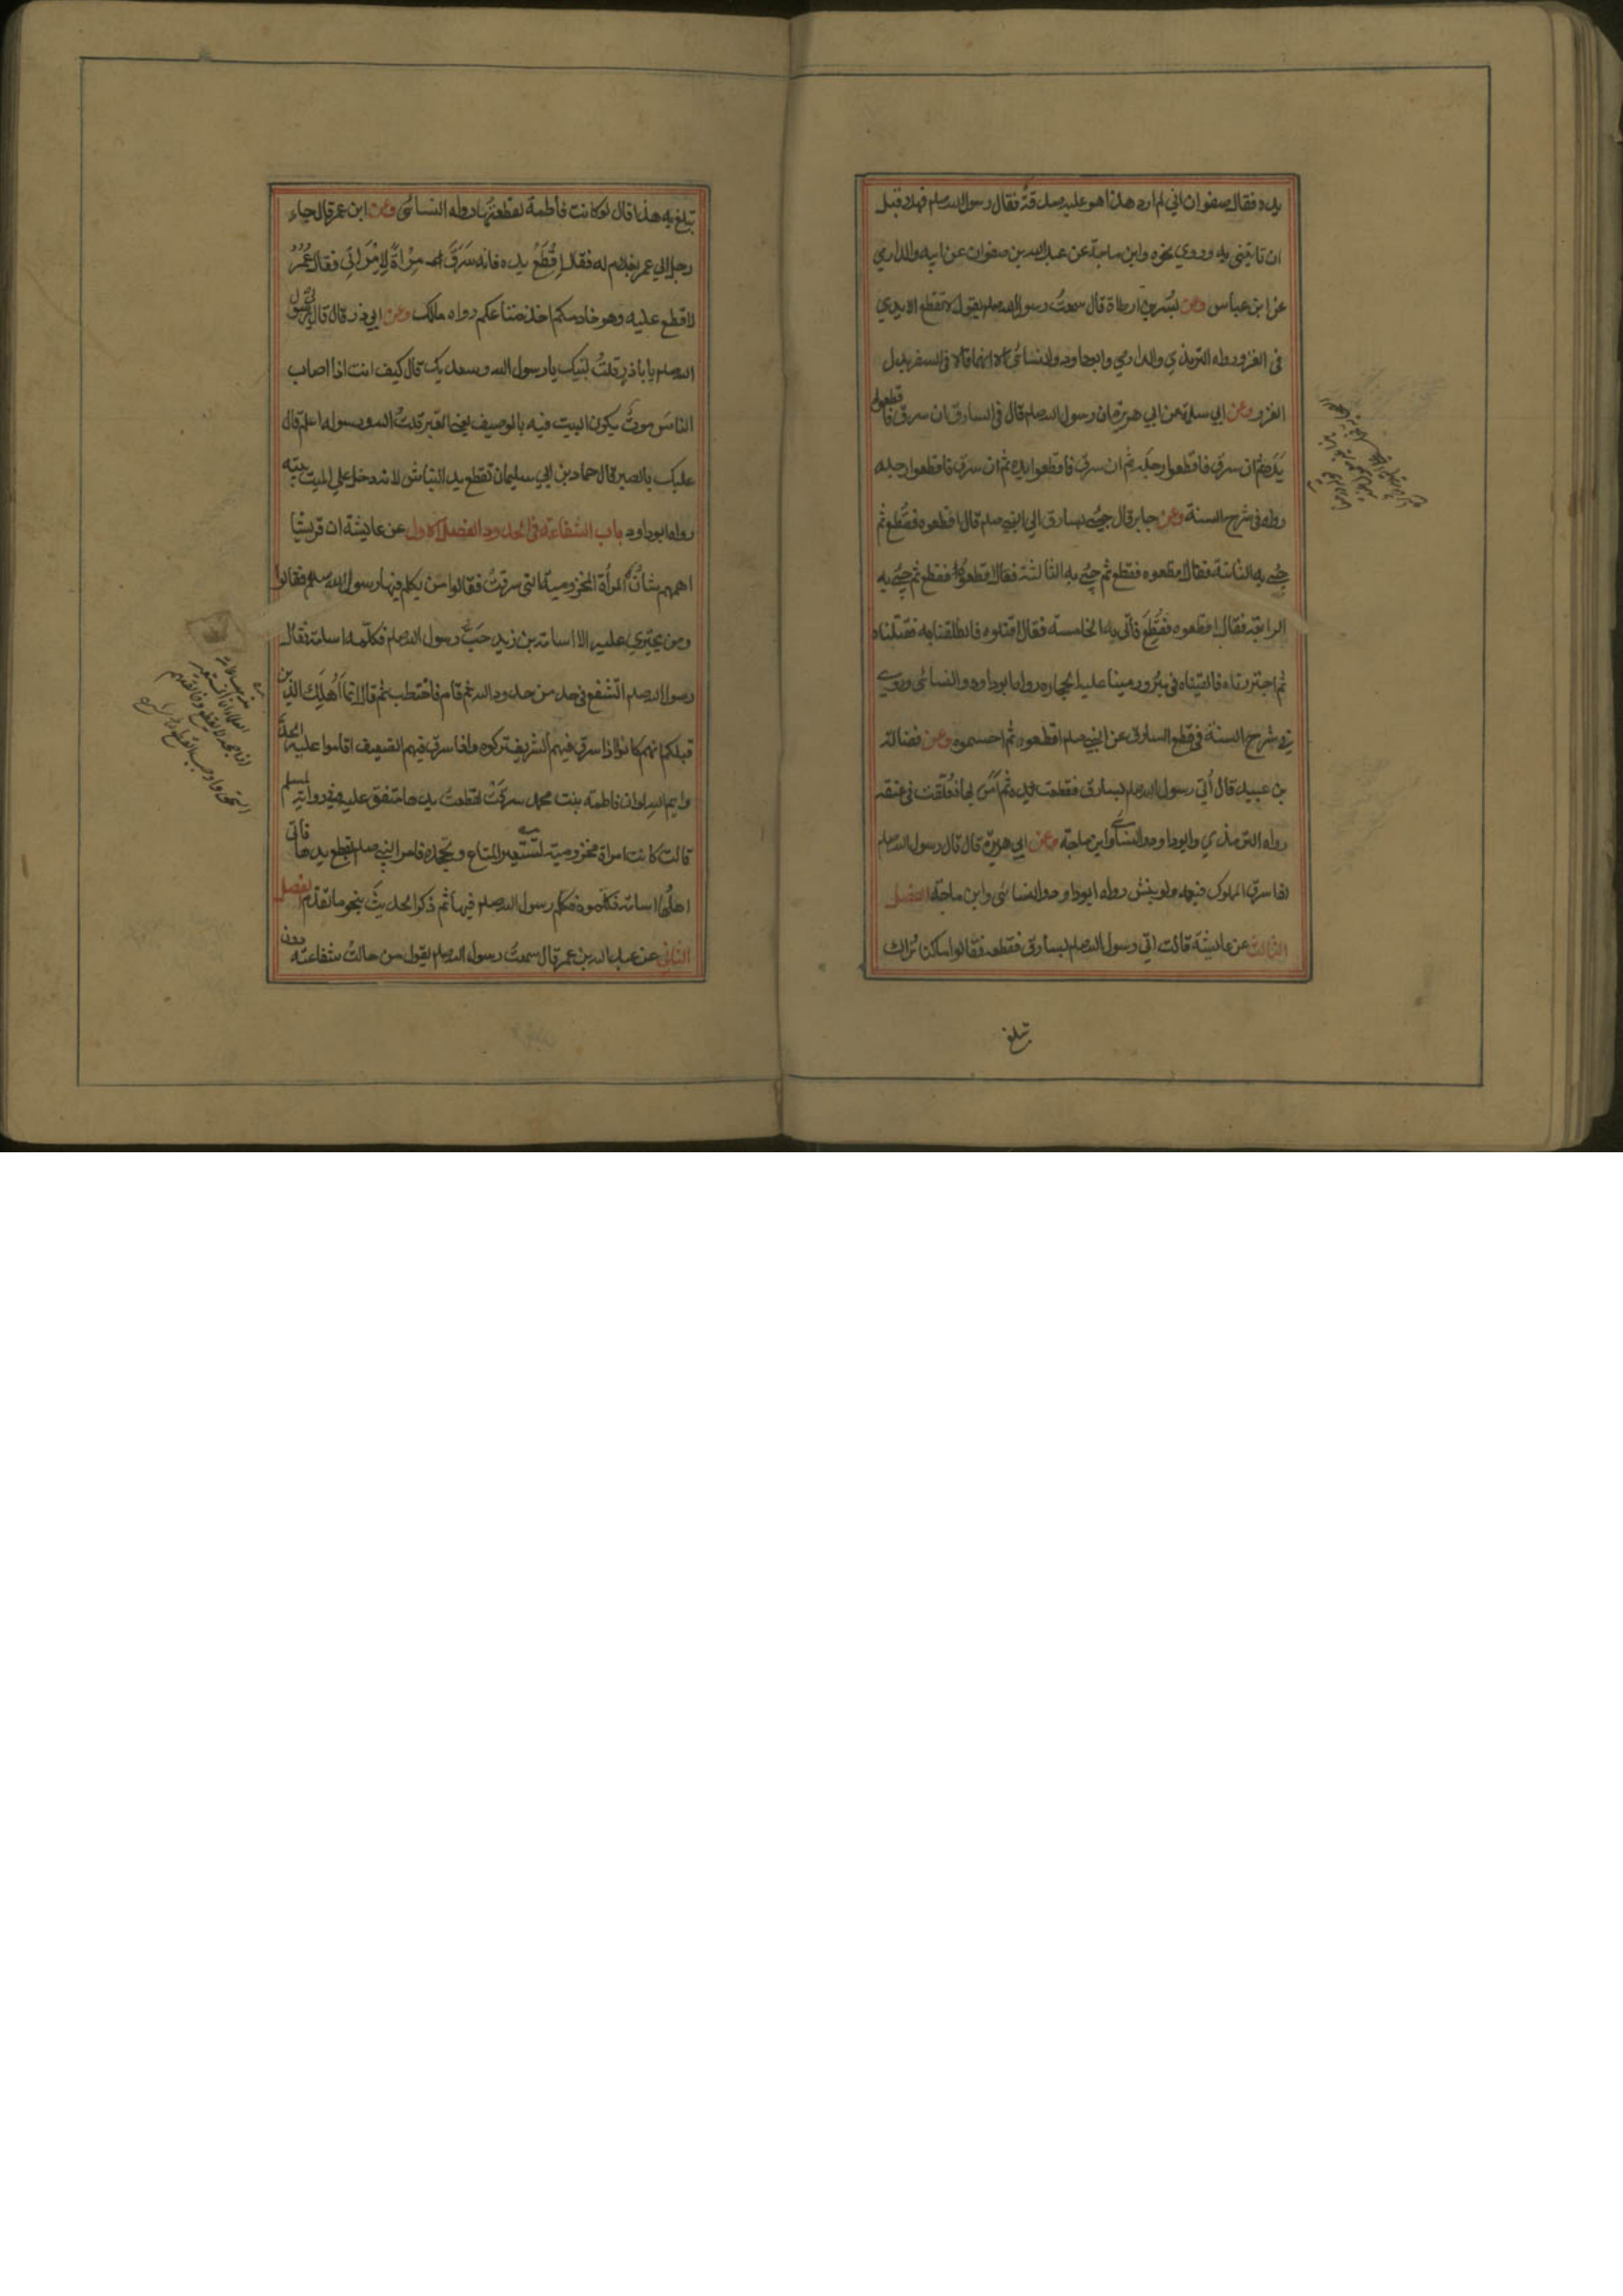 يده فقال صفوان اني لم ارد هذا هو عليه صدقة فقال رسول الله صلم فهلا قبل
ان تاتيني به وروي نحوه وابن ماجة عن عبد الله بن صفوان عن ابيه والدارمي
عن ابن عباس وعن بسر بن ارطاة قال سمعت رسول الله صلم يقول لا تقطع الايدي
في الغزو رواه الترمذي والدارمي وابوداود والنسائي الا انهما قالا في السفر بدل
الغزو وعن ابي سلمة عن ابي هريرة ان رسول الله صلم قال في السارق ان سرق فاقطعوا
يده ثم ان سرق فاقطعوا رجله ثم ان سرق فاقطعوا يده ثم ان سرق فاقطعوا رجله
رواه في شرح السنة وعن جابر قال جيء بسارق الي النبي صلم قال اقطعوه فقطع ثم
جيء به الثانية فقال اقطعوه فقطع ثم جيء به الثالثة فقال اقطعوه فقطع ثم جيء به
الرابعة فقال اقطعوه فقطع فأتي به الخامسة فقال اقتلوه فانطلقنا به فقتلناه
ثم اجتررناه فالقيناه في بئر ورمينا عليه الحجارة رواه ابوداود والنسائي وروي
في شرح السنة في قطع السارق عن النبي صلم اقطعوه ثم احسموه وعن فضالة
بن عبيد قال أتي رسول الله صلم بسارق فقطعت يده ثم أمر بها فعلقت في عنقه
رواه الترمذي وابوداود والنسائي وابن ماجة وعن ابي هريرة قال قال رسول الله صلم
اذا سرق المملوك فبعه ولو بنش رواه ابوداود والنسائي وابن ماجة الفصل
الثالث عن عايشة قالت اتي رسول الله صلم بسارق فقطعه فقالوا ما كنا نراك
تبلغ
تبلغ به هذا قال لو كانت فاطمة لقطعتها رواه النسائي وعن ابن عمر قال جاء
رجل الي عمر بغلام له فقال اقطع يده فانه سرق مرآة لامرأتي فقال عمر
لا قطع عليه وهو خادمكم اخذ متاعكم رواه مالك وعن ابي ذر قال قال لي رسول
الله صلم يا باذر قلت لبيك يا رسول الله وسعديك قال كيف انت اذا اصاب
الناس موت يكون البيت فيه بالوصيف يعني القبر قلت الله ورسوله اعلم قال
عليك بالصبر قال حماد بن ابي سليمان تقطع يد النباش لانه دخل علي الميت بيته
رواه ابوداود باب الشفاعة في الحدود الفصل الاول عن عايشة ان قريشا
اهمهم شان المرأة المخزومية التي سرقت فقالوا من يكلم فيها رسول الله صلم فقالوا
ومن يجتري عليه الا اسامة بن زيد حب رسول الله صلم فكلمه اسامة فقال
رسول الله صلم اتشفع في حد من حدود الله ثم قام فاختطب ثم قال انما اهلك الذين
قبلكم انهم كانوا اذا سرق فيهم الشريف تركوه واذا سرق فيهم الضعيف اقاموا عليه الحد
وايم الله لو ان فاطمة بنت محمد سرقت لقطعت يدها متفق عليه وفي رواية لمسلم
قالت كانت امراة مخزومية تستعير المتاع وتجحده فامر النبي صلم بقطع يدها فاتي
اهلها اسامة فكلموه فكلم رسول الله صلم فيها ثم ذكر الحديث بنحو ما تقدم الفصل
الثاني عن عبد الله بن عمر قال سمعت رسول الله صلم يقول من حالت شفاعته دون